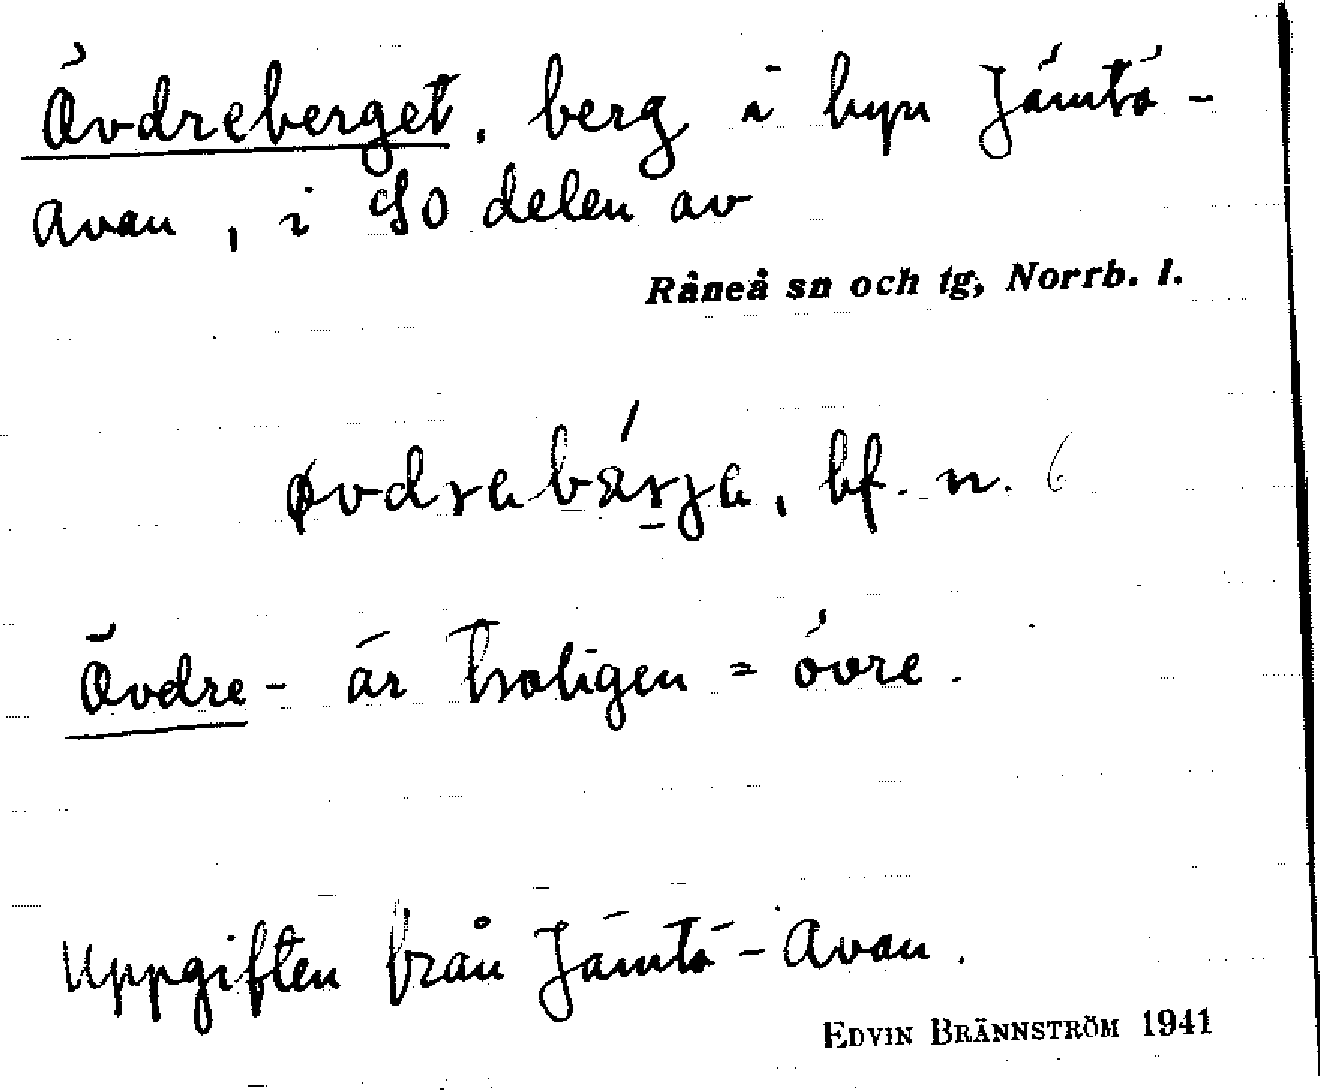 Övdreberget, berg i byn Jämtö-
avan, i SO delen av
Råneå sn och tg, Norrb. l.
bf. n.
Övdre- är troligen = övre.
Uppgiften från Jämtö-Avan.
EDVIN BRÄNNSTRÖM 1941